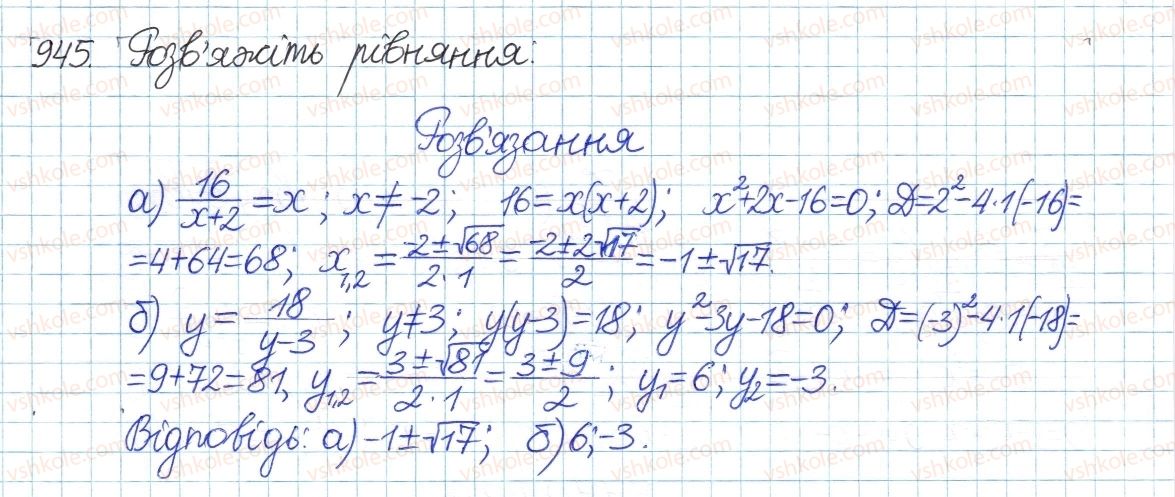 945. Розв'яжіть рівняння:
Розв'язання
а) 16/(x+2) = x; x ≠ -2; 16 = x(x+2); x²+2x-16=0; D=2²-4·1(-16)=
=4+64=68; x₁,₂ = (-2±√68)/(2·1) = (-2±2√17)/2 = -1±√17.
б) y = 18/(y-3); y≠3; y(y-3)=18; y²-3y-18=0; D=(-3)²-4·1(-18)=
=9+72=81, y₁,₂ = (3±√81)/(2·1) = (3±9)/2; y₁=6; y₂=-3.
Відповідь: а) -1±√17; б) 6; -3.